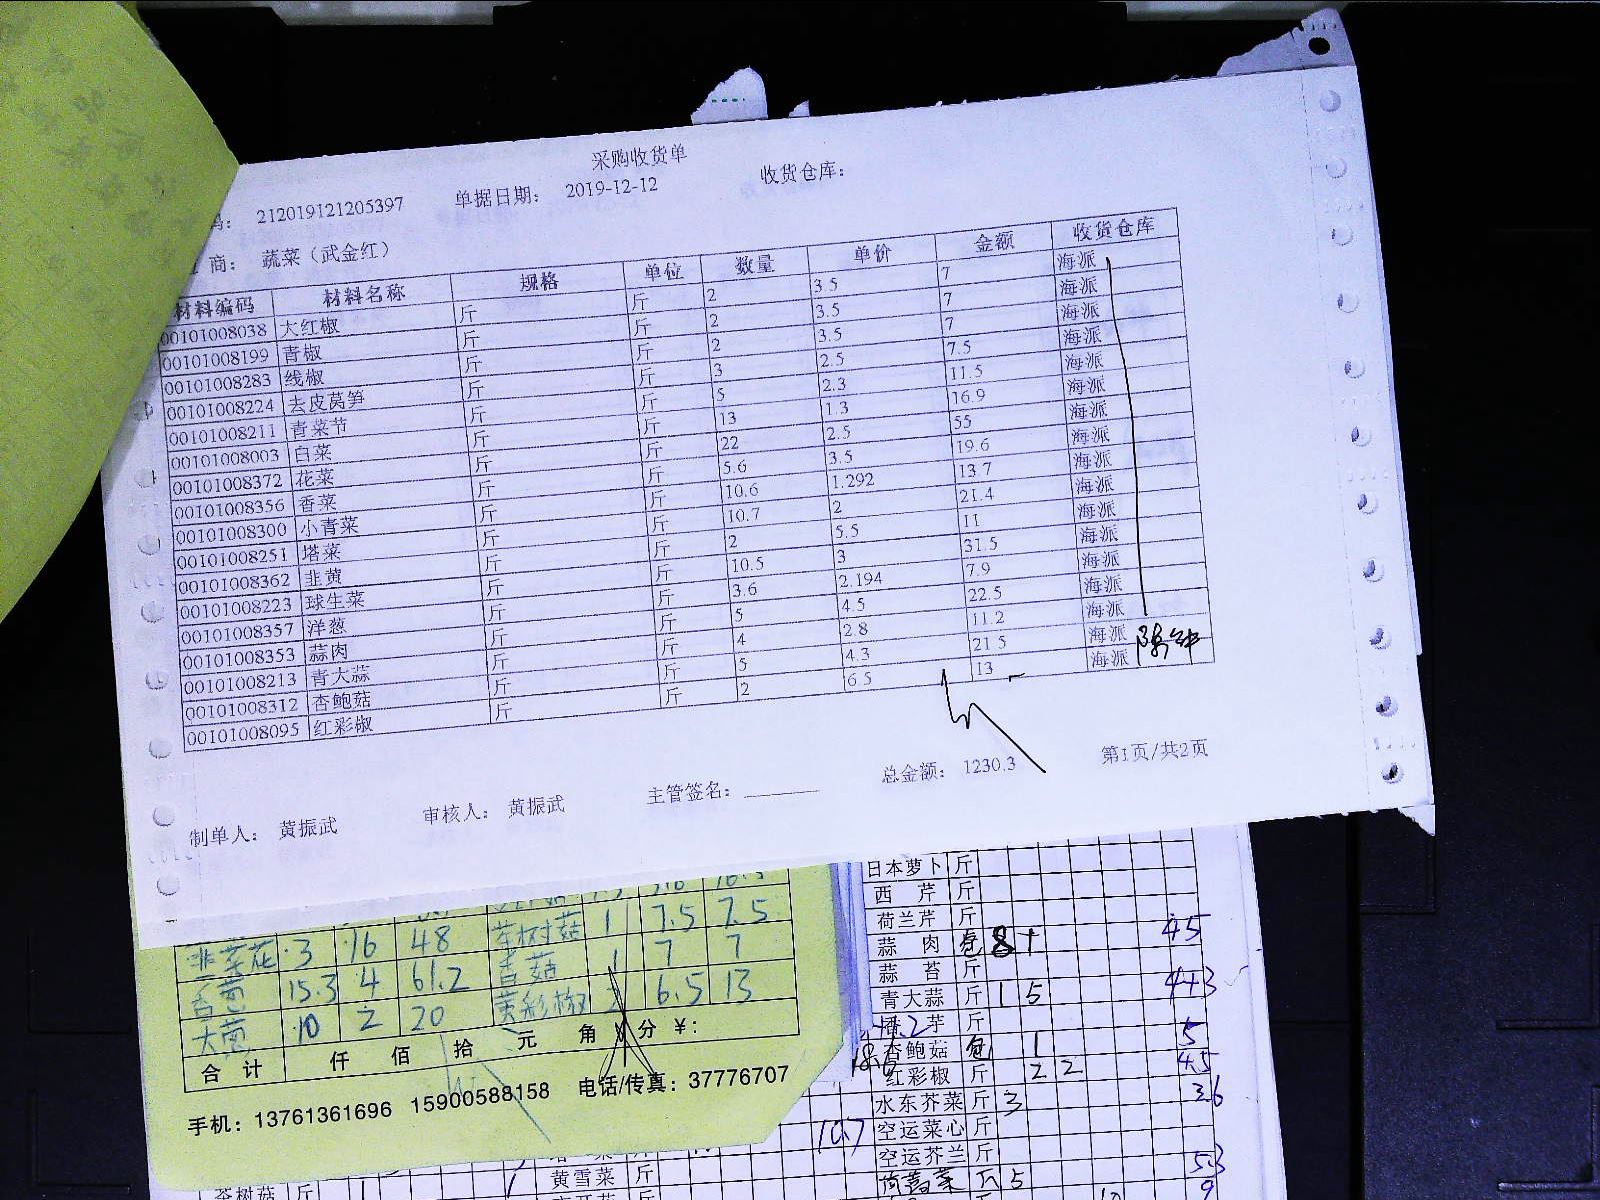 采购收货单
码： 212019121205397 单据日期： 2019-12-12 收货仓库：
商： 蔬菜（武金红）
材料编码 材料名称 规格 单位 数量 单价 金额 收货仓库
00101008038 大红椒 斤 斤 2 3.5 7 海派
00101008199 青椒 斤 斤 2 3.5 7 海派
00101008283 线椒 斤 斤 2 3.5 7 海派
00101008224 去皮莴笋 斤 斤 3 2.5 7.5 海派
00101008211 青菜节 斤 斤 5 2.3 11.5 海派
00101008003 白菜 斤 斤 13 1.3 16.9 海派
00101008372 花菜 斤 斤 22 2.5 55 海派
00101008356 香菜 斤 斤 5.6 3.5 19.6 海派
00101008300 小青菜 斤 斤 10.6 1.292 13.7 海派
00101008251 塔菜 斤 斤 10.7 2 21.4 海派
00101008362 韭黄 斤 斤 2 5.5 11 海派
00101008223 球生菜 斤 斤 10.5 3 31.5 海派
00101008357 洋葱 斤 斤 3.6 2.194 7.9 海派
00101008353 蒜肉 斤 斤 5 4.5 22.5 海派
00101008213 青大蒜 斤 斤 4 2.8 11.2 海派
00101008312 杏鲍菇 斤 斤 5 4.3 21.5 海派
00101008095 红彩椒 斤 斤 2 6.5 13 海派
总金额： 1230.3 第1页/共2页
制单人： 黄振武 审核人： 黄振武 主管签名：
韭菜花 3 16 48 茶树菇 1 7.5 7.5
15.3 4 61.2 香菇 1 7 7
大葱 10 2 20 美彩椒 2 6.5 13
合计 仟 佰 拾 元 角 分 ¥:
手机：13761361696 15900588158 电话/传真：37776707
日本萝卜 斤
西芹 斤
荷兰芹 斤
蒜肉 包 8 45
蒜苔 斤
青大蒜 斤 1 5 443
芋 斤
杏鲍菇 包 1 5
红彩椒 斤 2 2 45
水东芥菜 斤 3 36
10.7 空运菜心 斤
空运芥兰 斤
斤 5 53
黄雪菜 斤
茶树菇 斤